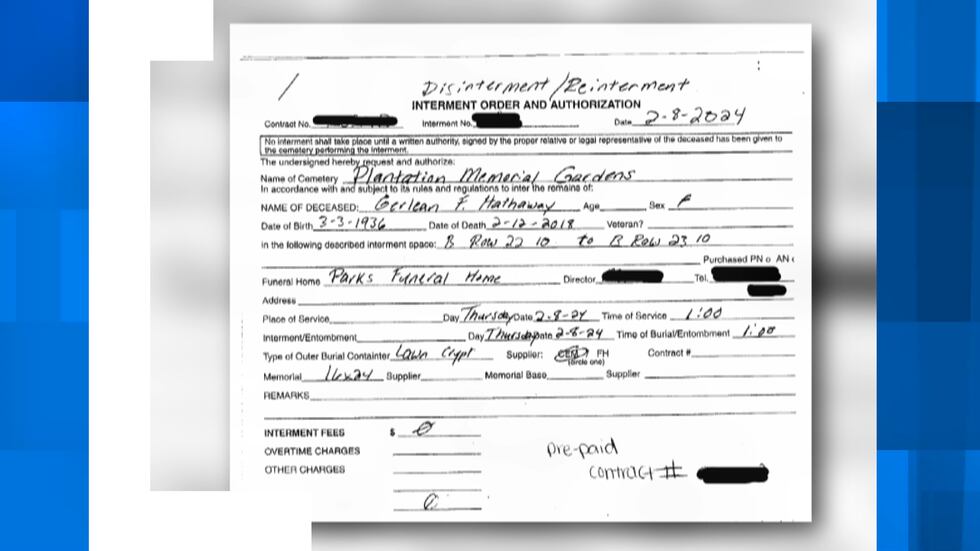 Disinterment/Reinterment
INTERMENT ORDER AND AUTHORIZATION
Contract No. Interment No. Date 2-8-2024
No interment shall take place until a written authority, signed by the proper relative or legal representative of the deceased has been given to
the cemetery performing the interment.
The undersigned hereby request and authorize:
Name of Cemetery Plantation Memorial Gardens
In accordance with and subject to its rules and regulations to inter the remains of:
NAME OF DECEASED: Gerlean F. Hathaway Age Sex F
Date of Birth 3-3-1936 Date of Death 2-12-2018 Veteran?
in the following described interment space: B Row 22 10 to B Row 23 10
Purchased PN o AN
Funeral Home Parks Funeral Home Director Tel.
Address
Place of Service Day Thursday Date 2-8-24 Time of Service 1:00
Interment/Entombment Day Thursday Date 2-8-24 Time of Burial/Entombment 1:00
Type of Outer Burial Containter Lawn Crypt Supplier: CEM FH Contract #
(circle one)
Memorial 16x24 Supplier Memorial Base Supplier
REMARKS
INTERMENT FEES $ 0
OVERTIME CHARGES
OTHER CHARGES
0
pre-paid
contract #